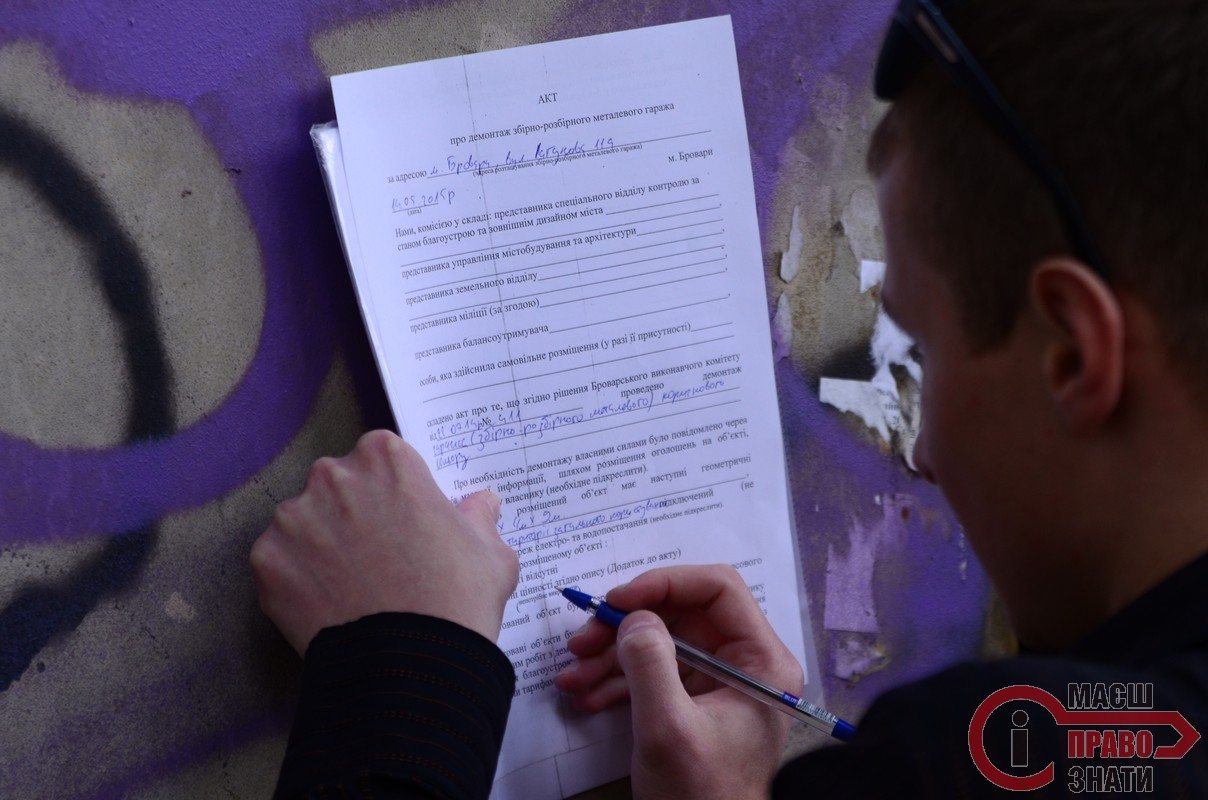 АКТ
про демонтаж збірно-розбірного металевого гаража
за адресою м. Бровари, вул.
(адреса розташування збірно-розбірного металевого гаража)
м. Бровари
14.05.2015р
(дата)
Нами, комісією у складі: представника спеціального відділу контролю за
станом благоустрою та зовнішнім дизайном міста
представника управління містобудування та архітектури
представника земельного відділу
представника міліції (за згодою)
представника балансоутримувача
особи, яка здійснила самовільне розміщення (у разі її присутності)
складено акт про те, що згідно рішення Броварського виконавчого комітету
від № 411 проведено демонтаж
гаража (збірно-розбірного металевого) коричневого
кольору
Про необхідність демонтажу власними силами було повідомлено через
інформації, шляхом розміщення оголошень на об'єкті,
власнику (необхідне підкреслити).
розміщений об'єкт має наступні геометричні
території загального користування підключений (не
електро- та водопостачання (необхідне підкреслити).
розміщеному об'єкті :
відсутні
цінності згідно опису (Додаток до акту)
об'єкт
об'єкти
робіт з
благоустрою
тарифам
МАЄШ
ПРАВО
ЗНАТИ